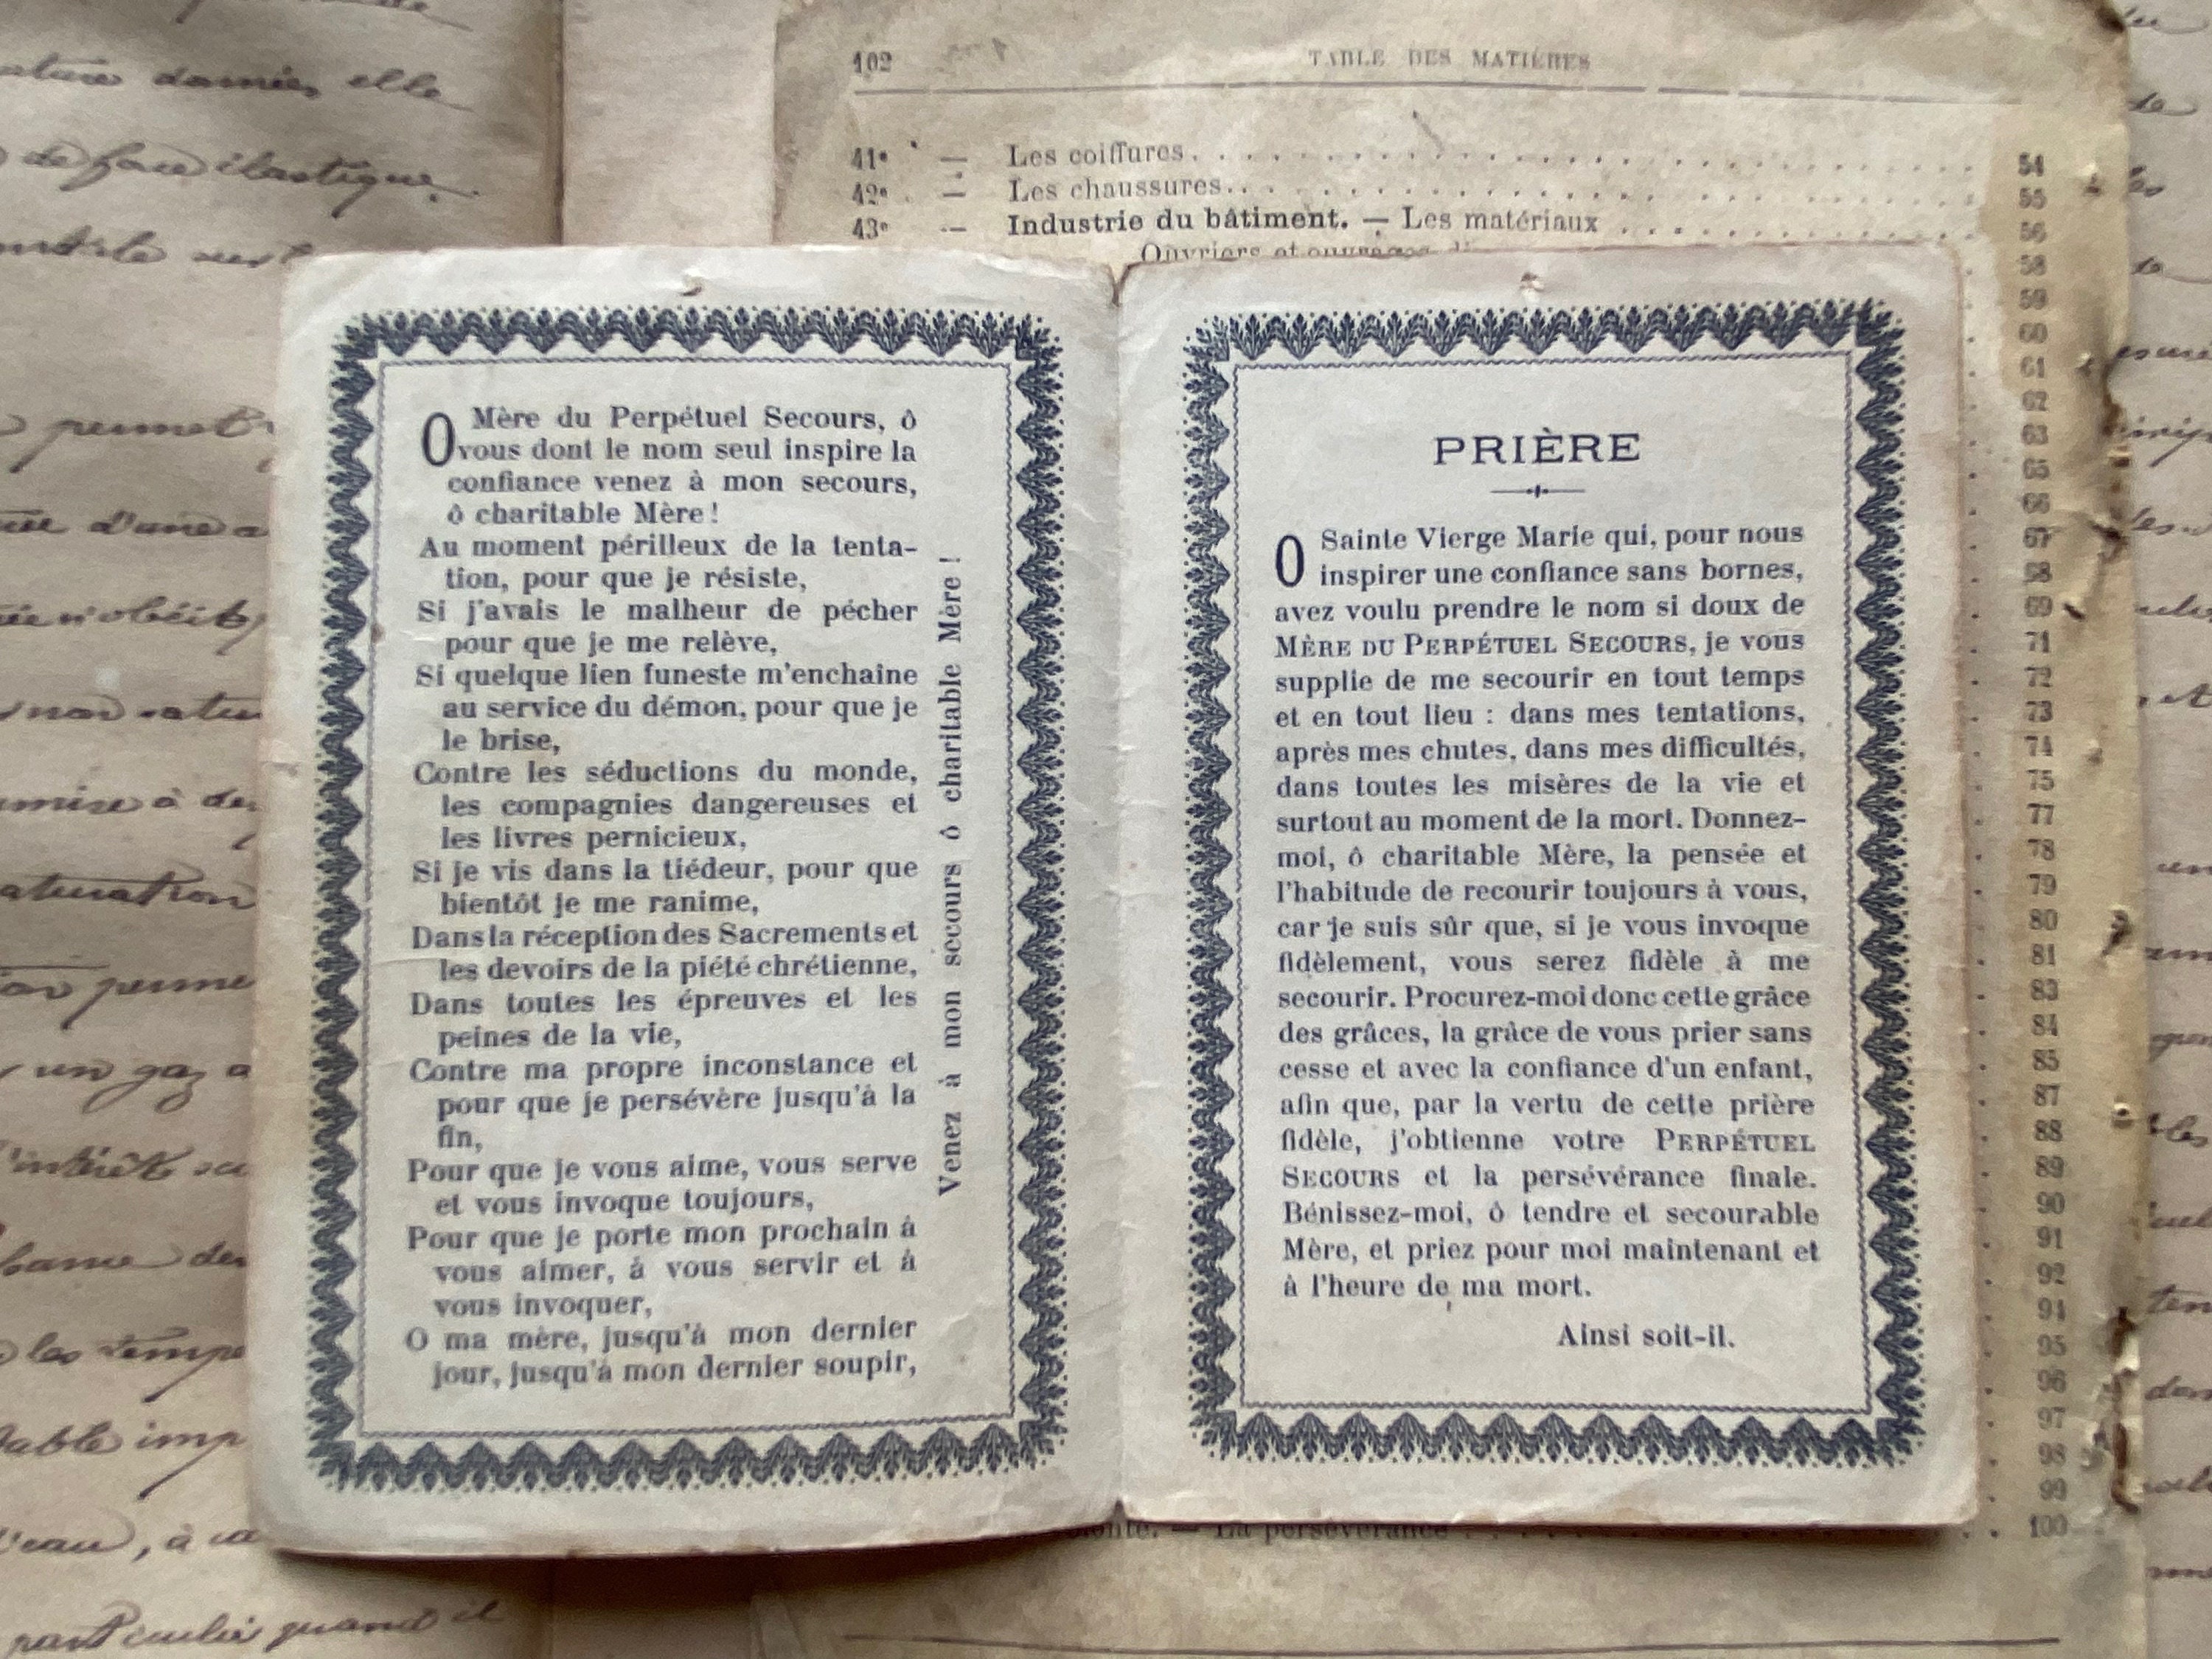 102 TABLE DES MATIÈRES
41e — Les coiffures 54
42e — Les chaussures 55
43e — Industrie du bâtiment. — Les matériaux 56
Ouvriers et 58
59
60
61
62
63
65
66
67
68
69
71
72
73
74
75
77
78
79
80
81
83
84
85
87
88
89
90
91
92
94
95
96
97
98
99
— La persévérance 100
O Mère du Perpétuel Secours, ô
vous dont le nom seul inspire la
confiance venez à mon secours,
ô charitable Mère !
Au moment périlleux de la tenta-
tion, pour que je résiste,
Si j'avais le malheur de pécher
pour que je me relève,
Si quelque lien funeste m'enchaine
au service du démon, pour que je
le brise,
Contre les séductions du monde,
les compagnies dangereuses et
les livres pernicieux,
Si je vis dans la tiédeur, pour que
bientôt je me ranime,
Dans la réception des Sacrements et
les devoirs de la piété chrétienne,
Dans toutes les épreuves et les
peines de la vie,
Contre ma propre inconstance et
pour que je persévère jusqu'à la
fin,
Pour que je vous aime, vous serve
et vous invoque toujours,
Pour que je porte mon prochain à
vous aimer, à vous servir et à
vous invoquer,
O ma mère, jusqu'à mon dernier
jour, jusqu'à mon dernier soupir,
Venez à mon secours ô charitable Mère !
PRIÈRE
O Sainte Vierge Marie qui, pour nous
inspirer une confiance sans bornes,
avez voulu prendre le nom si doux de
MÈRE DU PERPÉTUEL SECOURS, je vous
supplie de me secourir en tout temps
et en tout lieu : dans mes tentations,
après mes chutes, dans mes difficultés,
dans toutes les misères de la vie et
surtout au moment de la mort. Donnez-
moi, ô charitable Mère, la pensée et
l'habitude de recourir toujours à vous,
car je suis sûr que, si je vous invoque
fidèlement, vous serez fidèle à me
secourir. Procurez-moi donc cette grâce
des grâces, la grâce de vous prier sans
cesse et avec la confiance d'un enfant,
afin que, par la vertu de cette prière
fidèle, j'obtienne votre PERPÉTUEL
SECOURS et la persévérance finale.
Bénissez-moi, ô tendre et secourable
Mère, et priez pour moi maintenant et
à l'heure de ma mort.
Ainsi soit-il.
elle
de face élastique
permet
d'une a
un gaz a
l'intérêt
les temps
imp
à
quand il